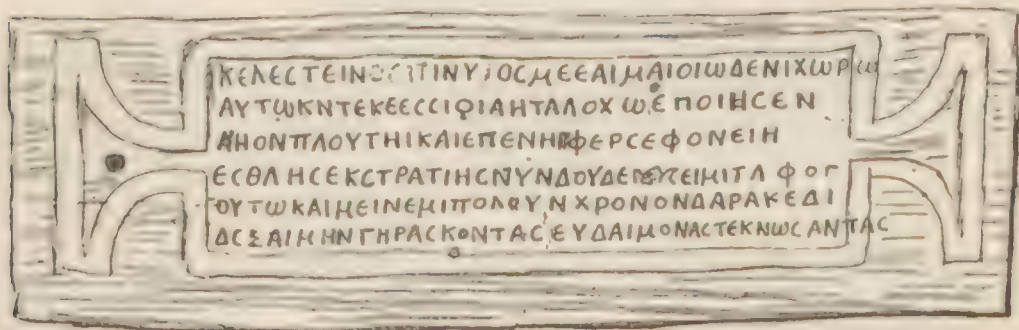 ΚΕΛΕϹΤΕΙΝΟϹΠΙΝΥΙΟϹΜΕΕΑΙΜΑΙΟΙωΔΕΝΙΧωΡω
ΑΥΤωΚΝΤΕΚΕΕϹϹΙΦΙΑΗΤΑΛΟΧωΕΠΟΙΗϹΕΝ
ΔΗΟΝΠΛΟΥΤΗΙΚΑΙΕΠΕΝΗΙΦΕΡϹΕΦΟΝΕΙΗ
ΕϹΘΛΗϹΕΚϹΤΡΑΤΙΗϹΝΥΝΔΟΥΔΕΠΕΥϹΕΙΜΙΤΑΦΟΓ
ΟΥΤωΚΑΙΜΕΙΝΕΜΙΠΟΛΟΥΝΧΡΟΝΟΝΔΑΡΑΚΕΔΙ
ΔϹΞΑΙΜΗΝΓΗΡΑϹΚΟΝΤΑϹΕΥΔΑΙΜΟΝΑϹΤΕΚΝωϹΑΝΤΑϹ